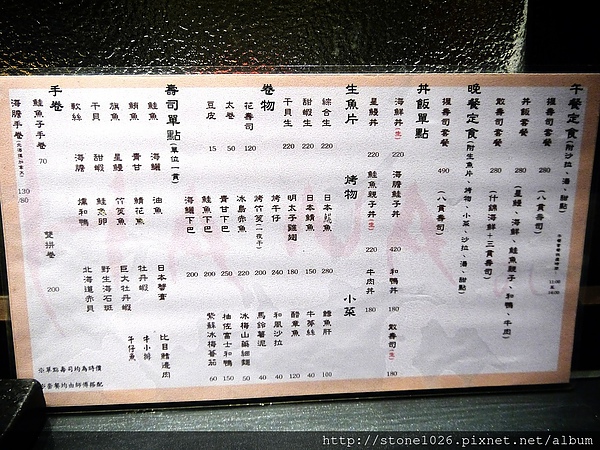 午餐定食(附沙拉、湯、甜點)
握壽司套餐 280
丼飯套餐 280
散壽司套餐 280
握壽司套餐 (八貫壽司)
丼飯套餐 (星鰻、海鮮、鮭魚親子、和鴨、牛肉)
散壽司套餐 (什錦海鮮+三貫壽司)
晚餐定食(附生魚片、烤物、小菜、沙拉、湯、甜點)
握壽司套餐 490 (八貫壽司)
丼飯單點
海鮮丼(生) 220
海膽鮭子丼 420
和鴨丼 180
散壽司(生) 180
星鰻丼 220
鮭魚親子丼(生) 220
牛肉丼 180
生魚片
綜合生 220
甜蝦生 220
干貝生 220
烤物
日本鯣魚 280
日本鯖魚 150
明太子雞翅 180
烤牛仔 240
烤竹筴(一夜干) 200
冰島赤魚 200
青甘下巴 250
鮭魚下巴 200
海鱺下巴 200
小菜
鱈魚肝 100
牛蒡絲 40
醋章魚 120
和風沙拉 40
馬鈴薯泥 40
冰梅山藥細麵 50
柚佐富士和鴨 150
紫蘇冰梅蕃茄 60
卷物
花壽司 120
太卷 50
豆皮 15
壽司單點(單位一貫)
鮭魚 海鱺 油魚 日本蟹膏 比目鰭邊肉
鮪魚 青甘 鯖花魚 牡丹蝦 牛小排
旗魚 星鰻 竹筴魚 巨大牡丹蝦 牛仔魚
干貝 甜蝦 鮭魚卵 野生海石斑
軟絲 海膽 燻和鴨 北海道赤貝
手卷
鮭魚子手卷 70
海膽手卷(北海道加拿大) 130 /80
雙拼卷 200
※單點壽司均為時價
※套餐均由師傅搭配
http://stone1026.pixnet.net/album